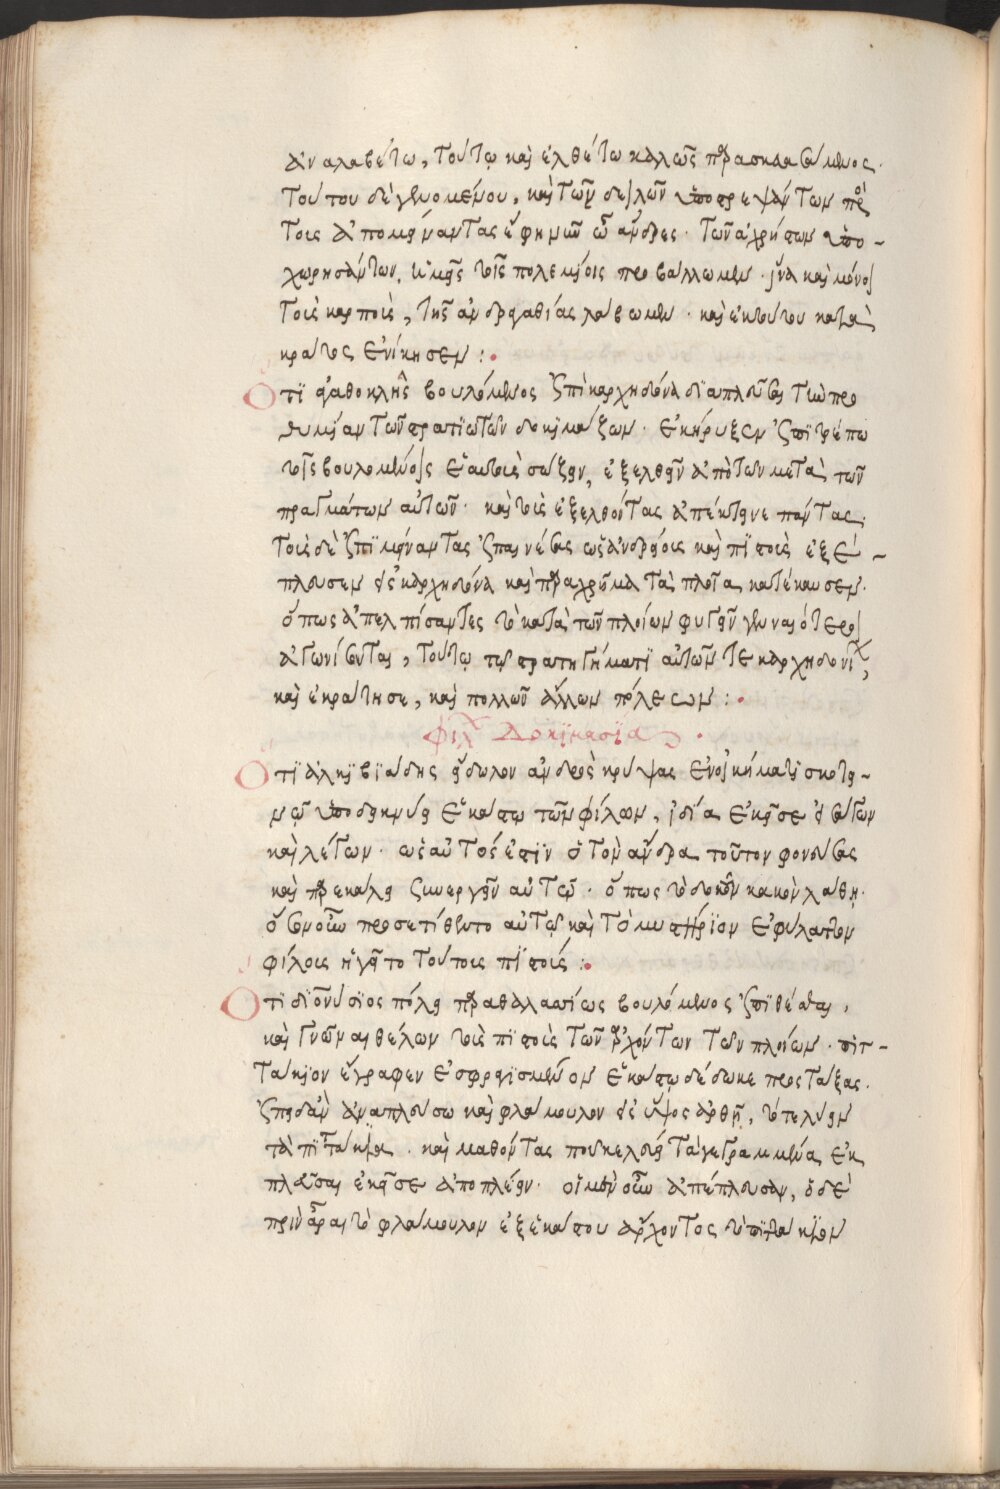 ἀναλαβέτω, τούτω καὶ ἐλθέτω καλῶς παρασκευασάμενος.
τούτου δὲ γενομένου, καὶ τῶν δειλῶν ὑποστρεψάντων πρὸς
τοὺς ἀπομείναντας ἔφη νῦν ὦ ἄνδρες. τῶν ἀχρήστων ὑπο-
χωρησάντων, ἡμεῖς τοῖς πολεμίοις προβάλλωμεν. ἵνα καὶ μόνοι
τοὺς καρποὺς, τῆς ἀνδραγαθίας λάβωμεν. καὶ ἐκ τούτου κατὰ
κράτος ἐνίκησεν :·
Ὅτι ἀγαθοκλῆς βουλόμενος ἐπὶ καρχηδόνα διαπλεῦσαι τὴν προ
θυμίαν τῶν στρατιωτῶν δοκιμάζων. ἐκήρυξεν ἐπιτρέπω
τοῖς βουλομένοις ἑαυτοὺς σώζειν, ἐξελθεῖν ἀπὸ τῶν μετὰ τῶν
πραγμάτων αὐτῶν. καὶ τοὺς ἐξελθόντας ἀπέκτεινε πάντας,
τοὺς δὲ ἐπιμείναντας ἐπαινέσας ὡς ἀνδρείους καὶ πιστοὺς ἐξέ-
πλευσεν εἰς καρχηδόνα καὶ παραχρῆμα τὰ πλοῖα κατέκαυσεν.
ὅπως ἀπελπίσαντες τὸ κατὰ τῶν πλοίων φυγεῖν γενναιότεροι
ἀγωνίσωνται, τούτω τῷ στρατηγήματι αὐτῶν τε καρχηδονίων,
καὶ ἐκράτησε, καὶ πολλῶν ἄλλων πόλεων :·
φίλων Δοκιμασία ·
Ὅτι ἀλκιβιάδης εἴδωλον ἀνδρὸς κρύψας ἐν οἰκήματι σκοτει-
νῷ ὑποδεικνύει ἑκάστω τῶν φίλων, ἰδία ἐκεῖσε εἰσάγων
καὶ λέγων. ὡς αὐτός ἐστιν ὁ τὸν ἄνδρα τοῦτον φονεύσας
καὶ παρεκάλει συνεργεῖν αὐτῷ. ὅπως τὸ δοκοῦν κακὸν λάθῃ.
ὅσοι οὖν προσετίθεντο αὐτῷ καὶ τὸ μυστήριον ἐφύλαττον
φίλους ἡγεῖτο τούτους πιστούς :·
Ὅτι διονύσιος πόλει παραθαλασσίω βουλόμενος ἐπιθέσθαι,
καὶ γνῶναι θέλων τοὺς πιστοὺς τῶν ἀρχόντων τῶν πλοίων. πιτ-
τάκιον ἔγραφεν ἐσφραγισμένον ἑκάστω δέδωκε προστάξας.
ἐπειδὰν ἀναπλεύσω καὶ φλάμουλον εἰς ὕψος ἀρθῇ, τὸ τελεῖν
τὰ πιττάκια. καὶ μαθόντας ποῦ κελεύει τὰ γεγραμμένα ἐκ
πλεῦσαι ἐκεῖσε ἀποπλέειν. οἱ μὲν οὖν ἀπέπλευσαν, ὁ δὲ
πρὶν ἆραι τὸ φλάμουλον ἐξ ἑκάστου ἄρχοντος τὸ πιττάκιον